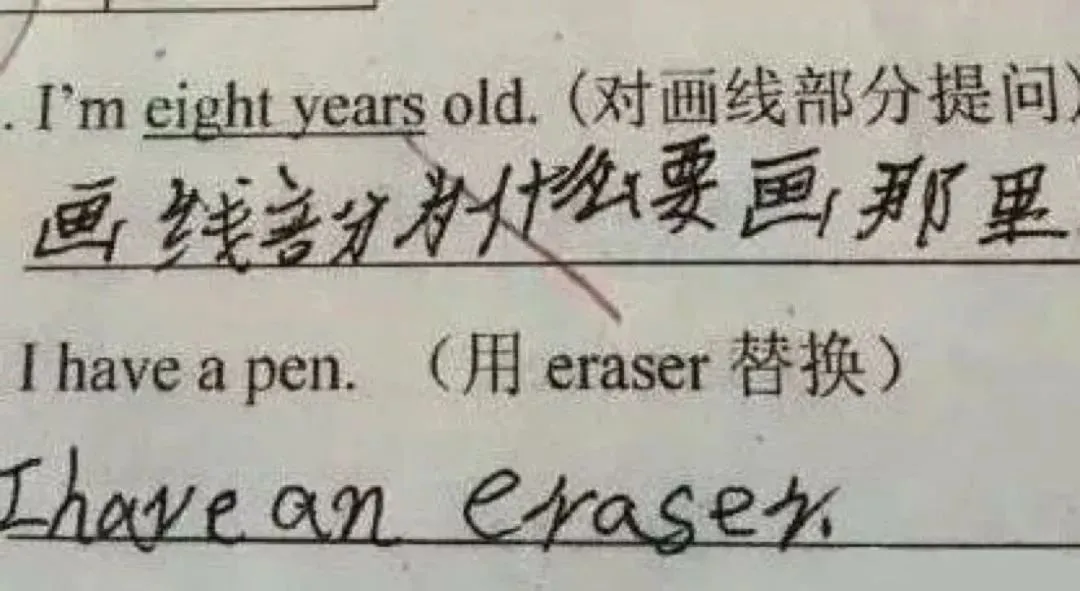 . I'm eight years old. (对画线部分提问)
画线部分为什么要画那里
I have a pen. （用 eraser 替换）
I have an eraser.